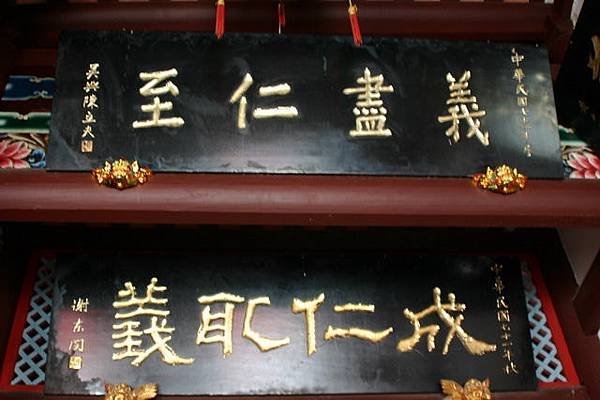 中華民國七十年
義盡仁至
吳興陳立夫
中華民國六十一年秋
成仁取義
謝東閔